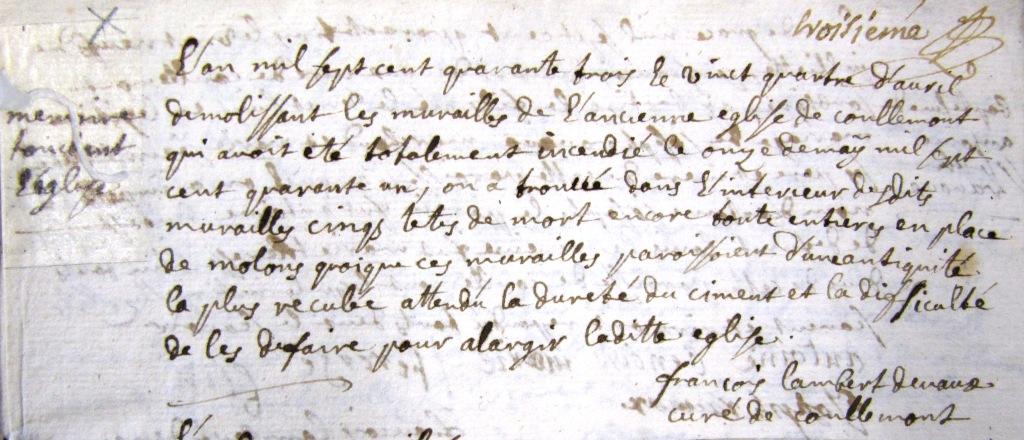 troisieme
L'an mil sept cent quarante trois le vinct quatre d'avril
demolissant les murailles de L'ancienne eglise de coullemont
qui avoit eté totalement incendie le onze de may mil sept
cent quarante un, on a trouvé dans L'interieur desdits
murailles cinqs tetes de mort encore toute entieres en place
de molons quoique ces murailles paroissoient d'une antiquité
la plus reculée attendu la dureté du ciment et la difficulté
de les defaire pour alargir laditte eglise.
françois lambert devaux
curé de coullemont
memoire
touchant
L'eglise